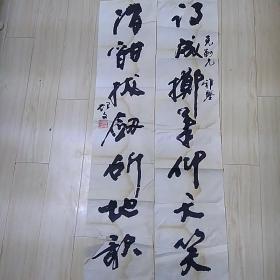 诗成掷笔仰天笑
酒酣拔剑斫地歌